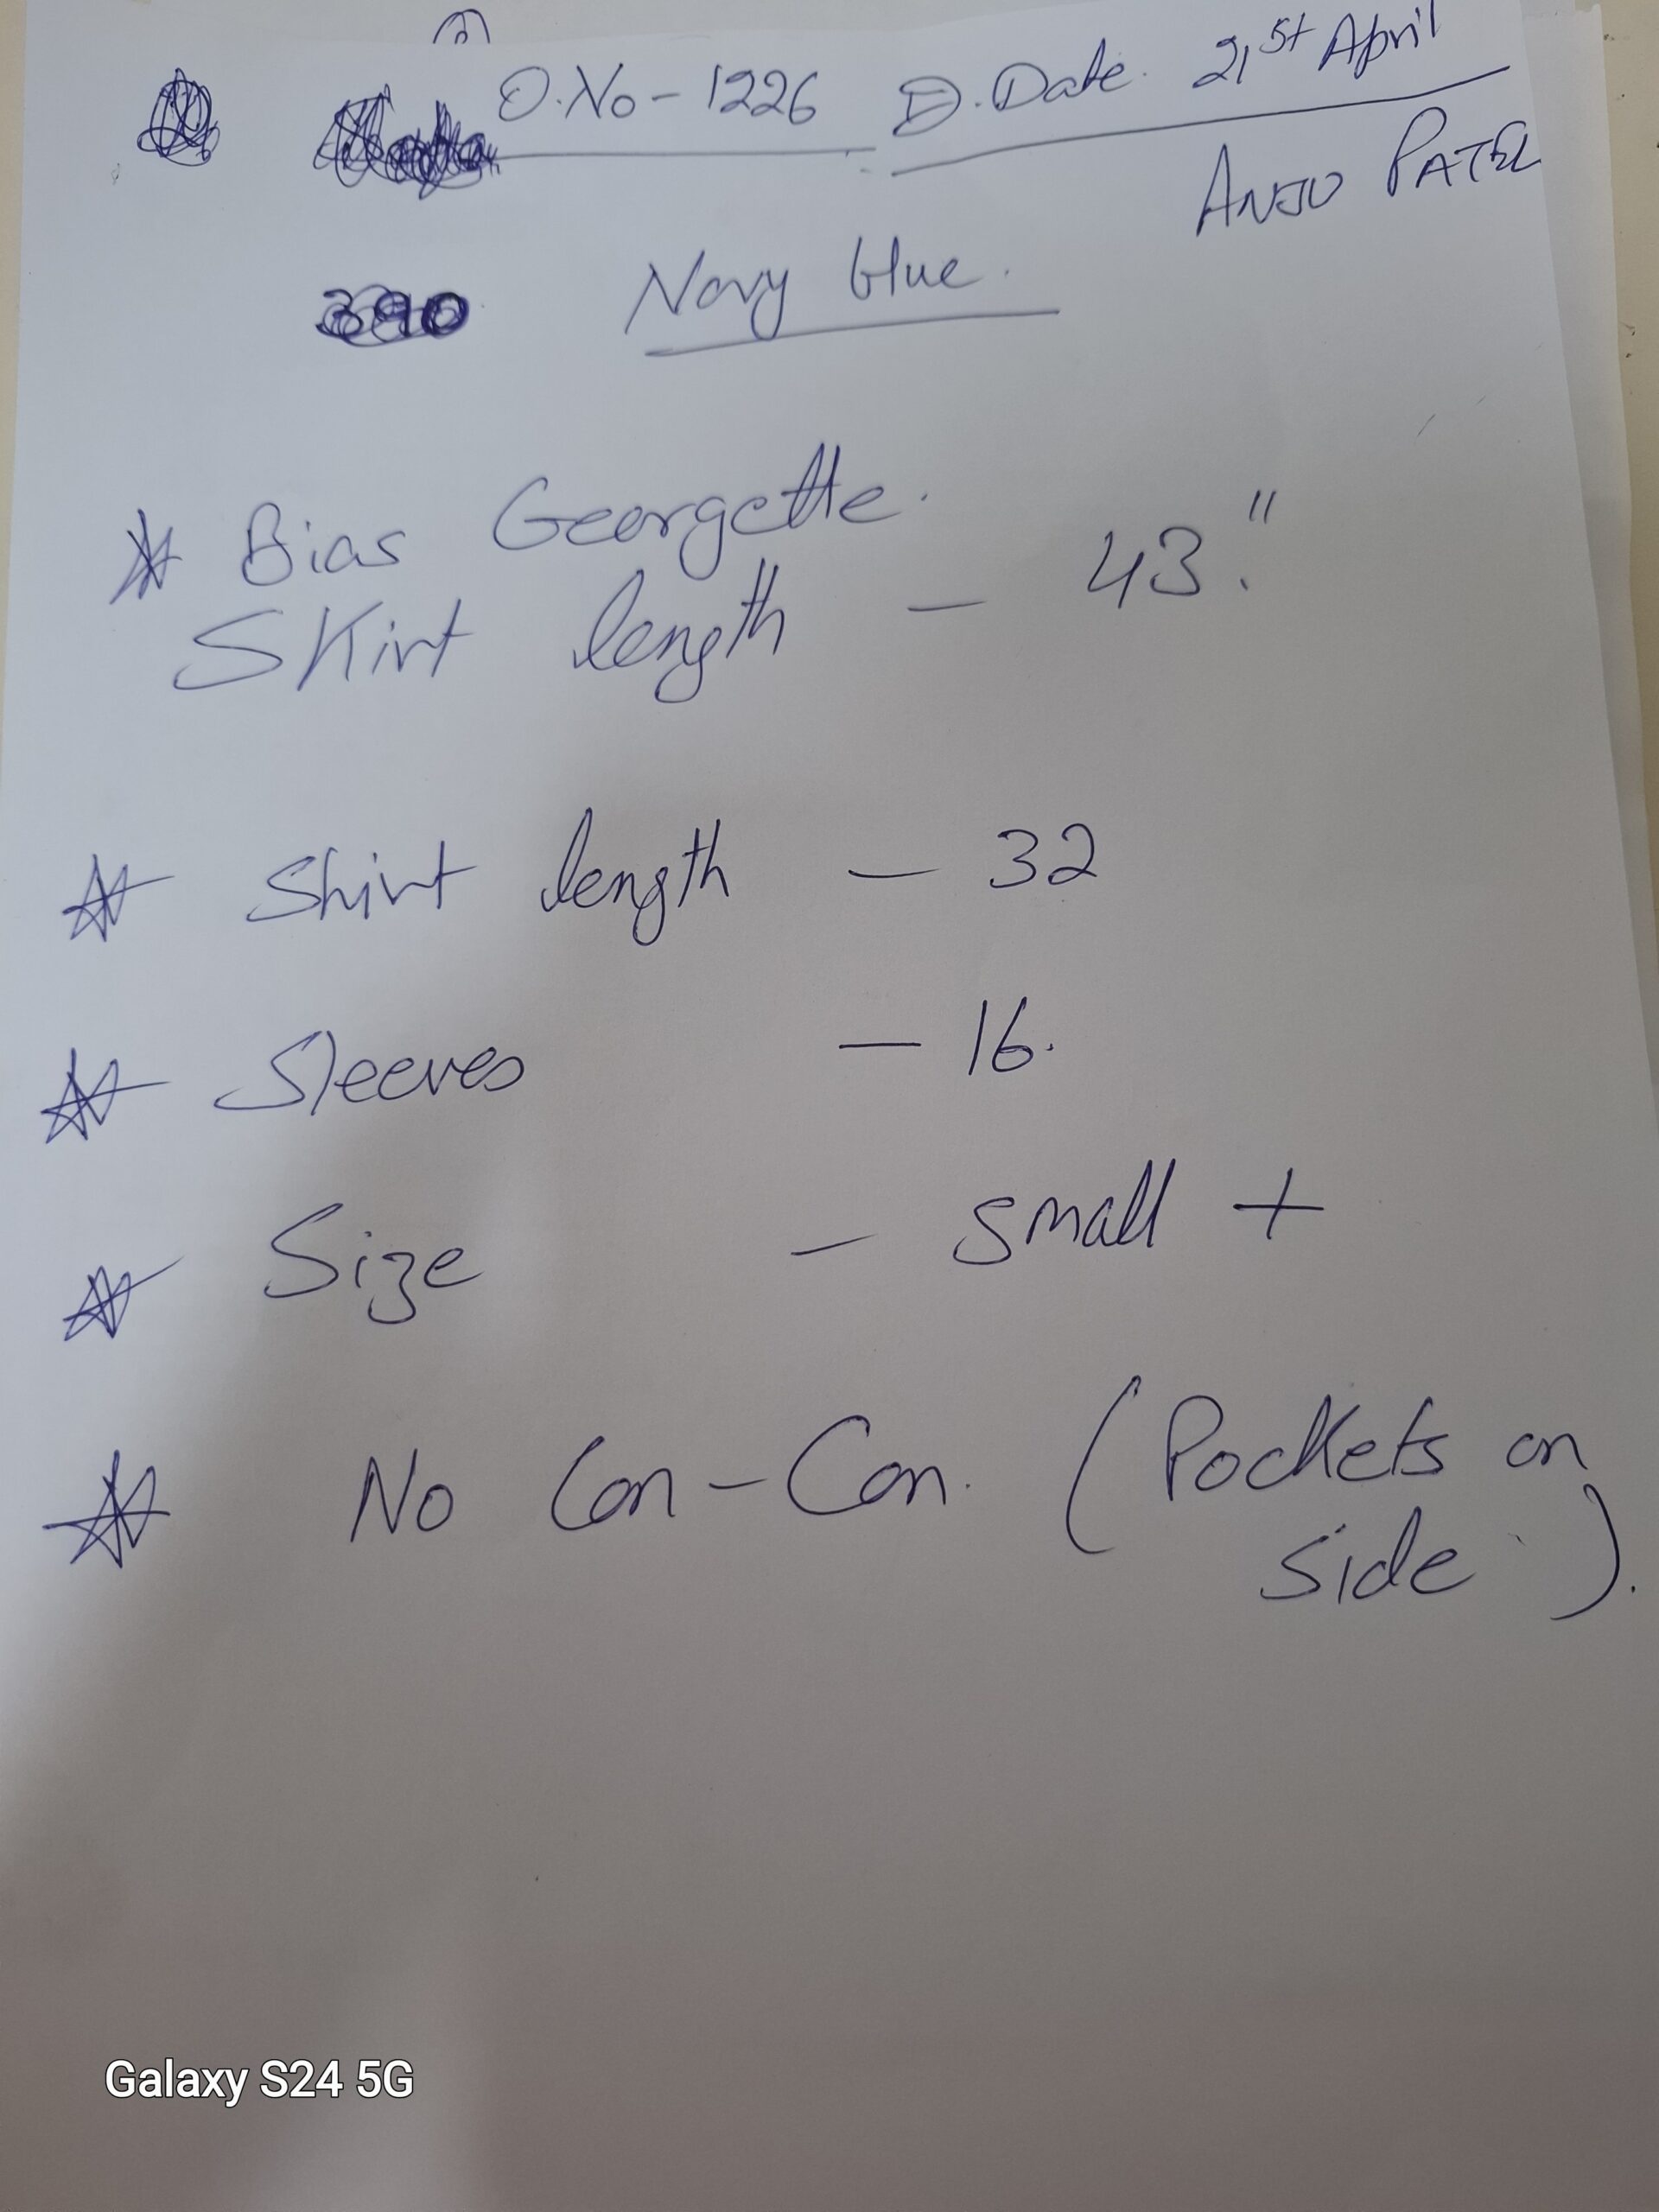 O.No - 1226 D. Date. 21st April
ANJU PATEL
390 Navy blue.
Bias Georgette.
Skirt length - 43."
Shirt length - 32
Sleeves - 16.
Size - small +
No Can-Can. (Pockets on
side).
Galaxy S24 5G